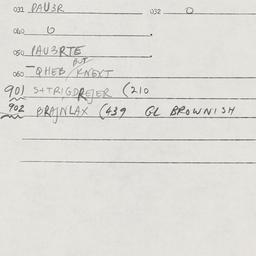 031 PAU3R 032 0
040 0
050 PAU3RTE
BUT
060 QHEB/KNEXT
901 S+TRIGDREJER (210
902 BRAJNLAX (439 GL BROWNISH